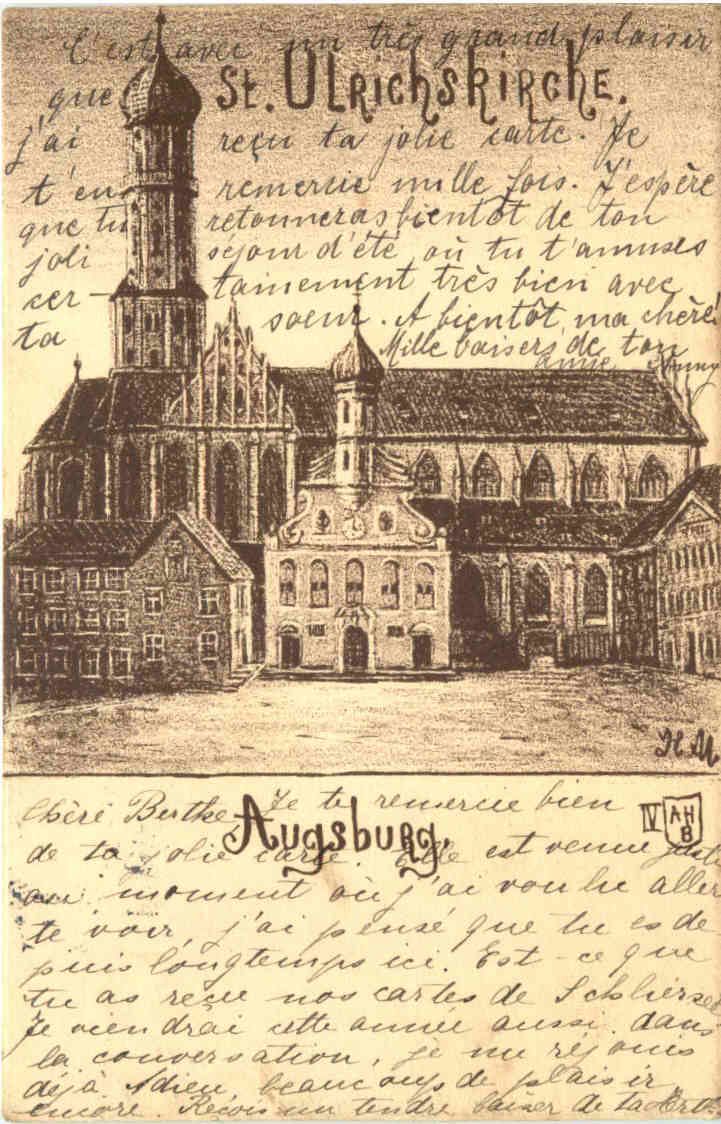 C'est avec un très grand plaisir
que
St. Ulrichskirche.
j'ai reçu ta jolie carte. Je
t'en remercie mille fois. J'espère
que tu retourneras bientôt de ton
joli séjour d'été, où tu t'amuses
cer- tainement très bien avec
ta soeur. A bientôt, ma chère!
Mille baisers de ton
amie Anny
H M
Chère Berthe, Je te remercie bien
IV AHB
Augsburg.
de ta jolie carte. Elle est venue juste
au moment où j'ai voulu aller
te voir, j'ai pensé que tu es de
puis longtemps ici. Est-ce que
tu as reçu nos cartes de Schliersee
Je viendrai cette année aussi dans
la conversation, je me réjouis
déjà Adieu beaucoup de plaisir
encore. Reçois un tendre baiser de ta